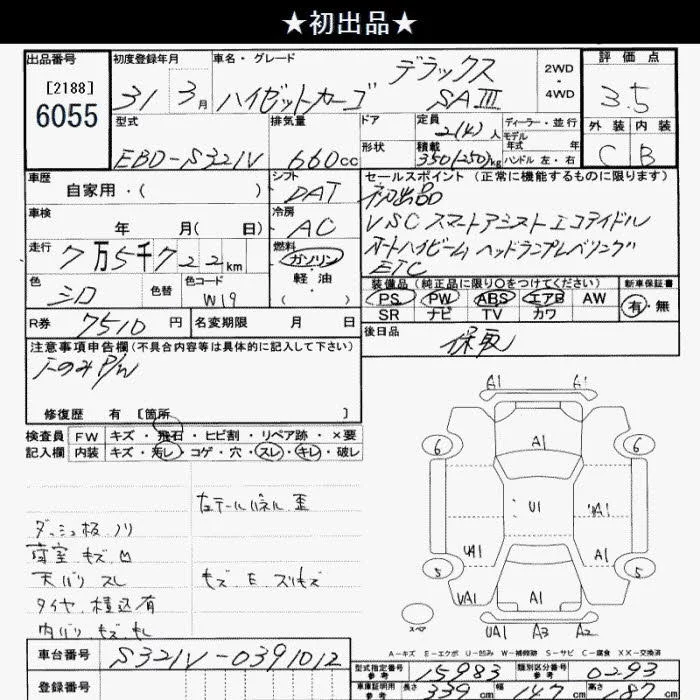 ★初出品★
出品番号
[2188]
6055
初度登録年月
31年 3月
車名・グレード
ハイゼットカーゴ
デラックス
SAⅢ
2WD
・
4WD
評価点
3.5
外装 内装
C B
型式
EBD-S321V
排気量
660cc
ドア
形状
定員
2(4)人
積載
350(250)kg
ディーラー・並行
モデル
年式 年
ハンドル 左・右
車歴
自家用・( )
シフト
DAT
セールスポイント (正常に機能するものに限ります)
初出品
VSC スマートアシスト エコアイドル
オートハイビーム ヘッドランプレベリング
ETC
車検
年 月( 日)
冷房
AC
走行
7万5千722km
燃料
ガソリン
・
軽油
( )
色
シロ
色替
色コード
W19
装備品 (純正品に限り○をつけてください)
PS PW ABS エアB AW
SR ナビ TV カワ
新車保証書
有・無
R券 7510円
名変期限 月 日
後日品
保取
注意事項申告欄(不具合内容等は具体的に記入して下さい)
下のみP/W
修復歴 有 [箇所 ]
検査員
記入欄
FW キズ・飛石・ヒビ割・リペア跡・×要
内装 キズ・汚レ・コゲ・穴・スレ・キレ・破レ
左テールパネル歪
ダッシュ板ノリ
荷室キズ凹
天バリ スレ
キズ E スリキズ
タイヤ積込有
内バリ キズ
A1 A1
6 A1 6
U1 A1
UA1 A1
5 5
UA1 A1
スペア
UA1 A3 A2
A-キズ E-エクボ U-凹み W-補修跡 S-サビ C-腐食 XX-交換済
車台番号 S321V-0391012
登録番号
型式指定番号
参考
15983
類別区分番号
参考
0293
車庫証明用
参考
長さ 339cm 幅 147cm 高さ 187cm